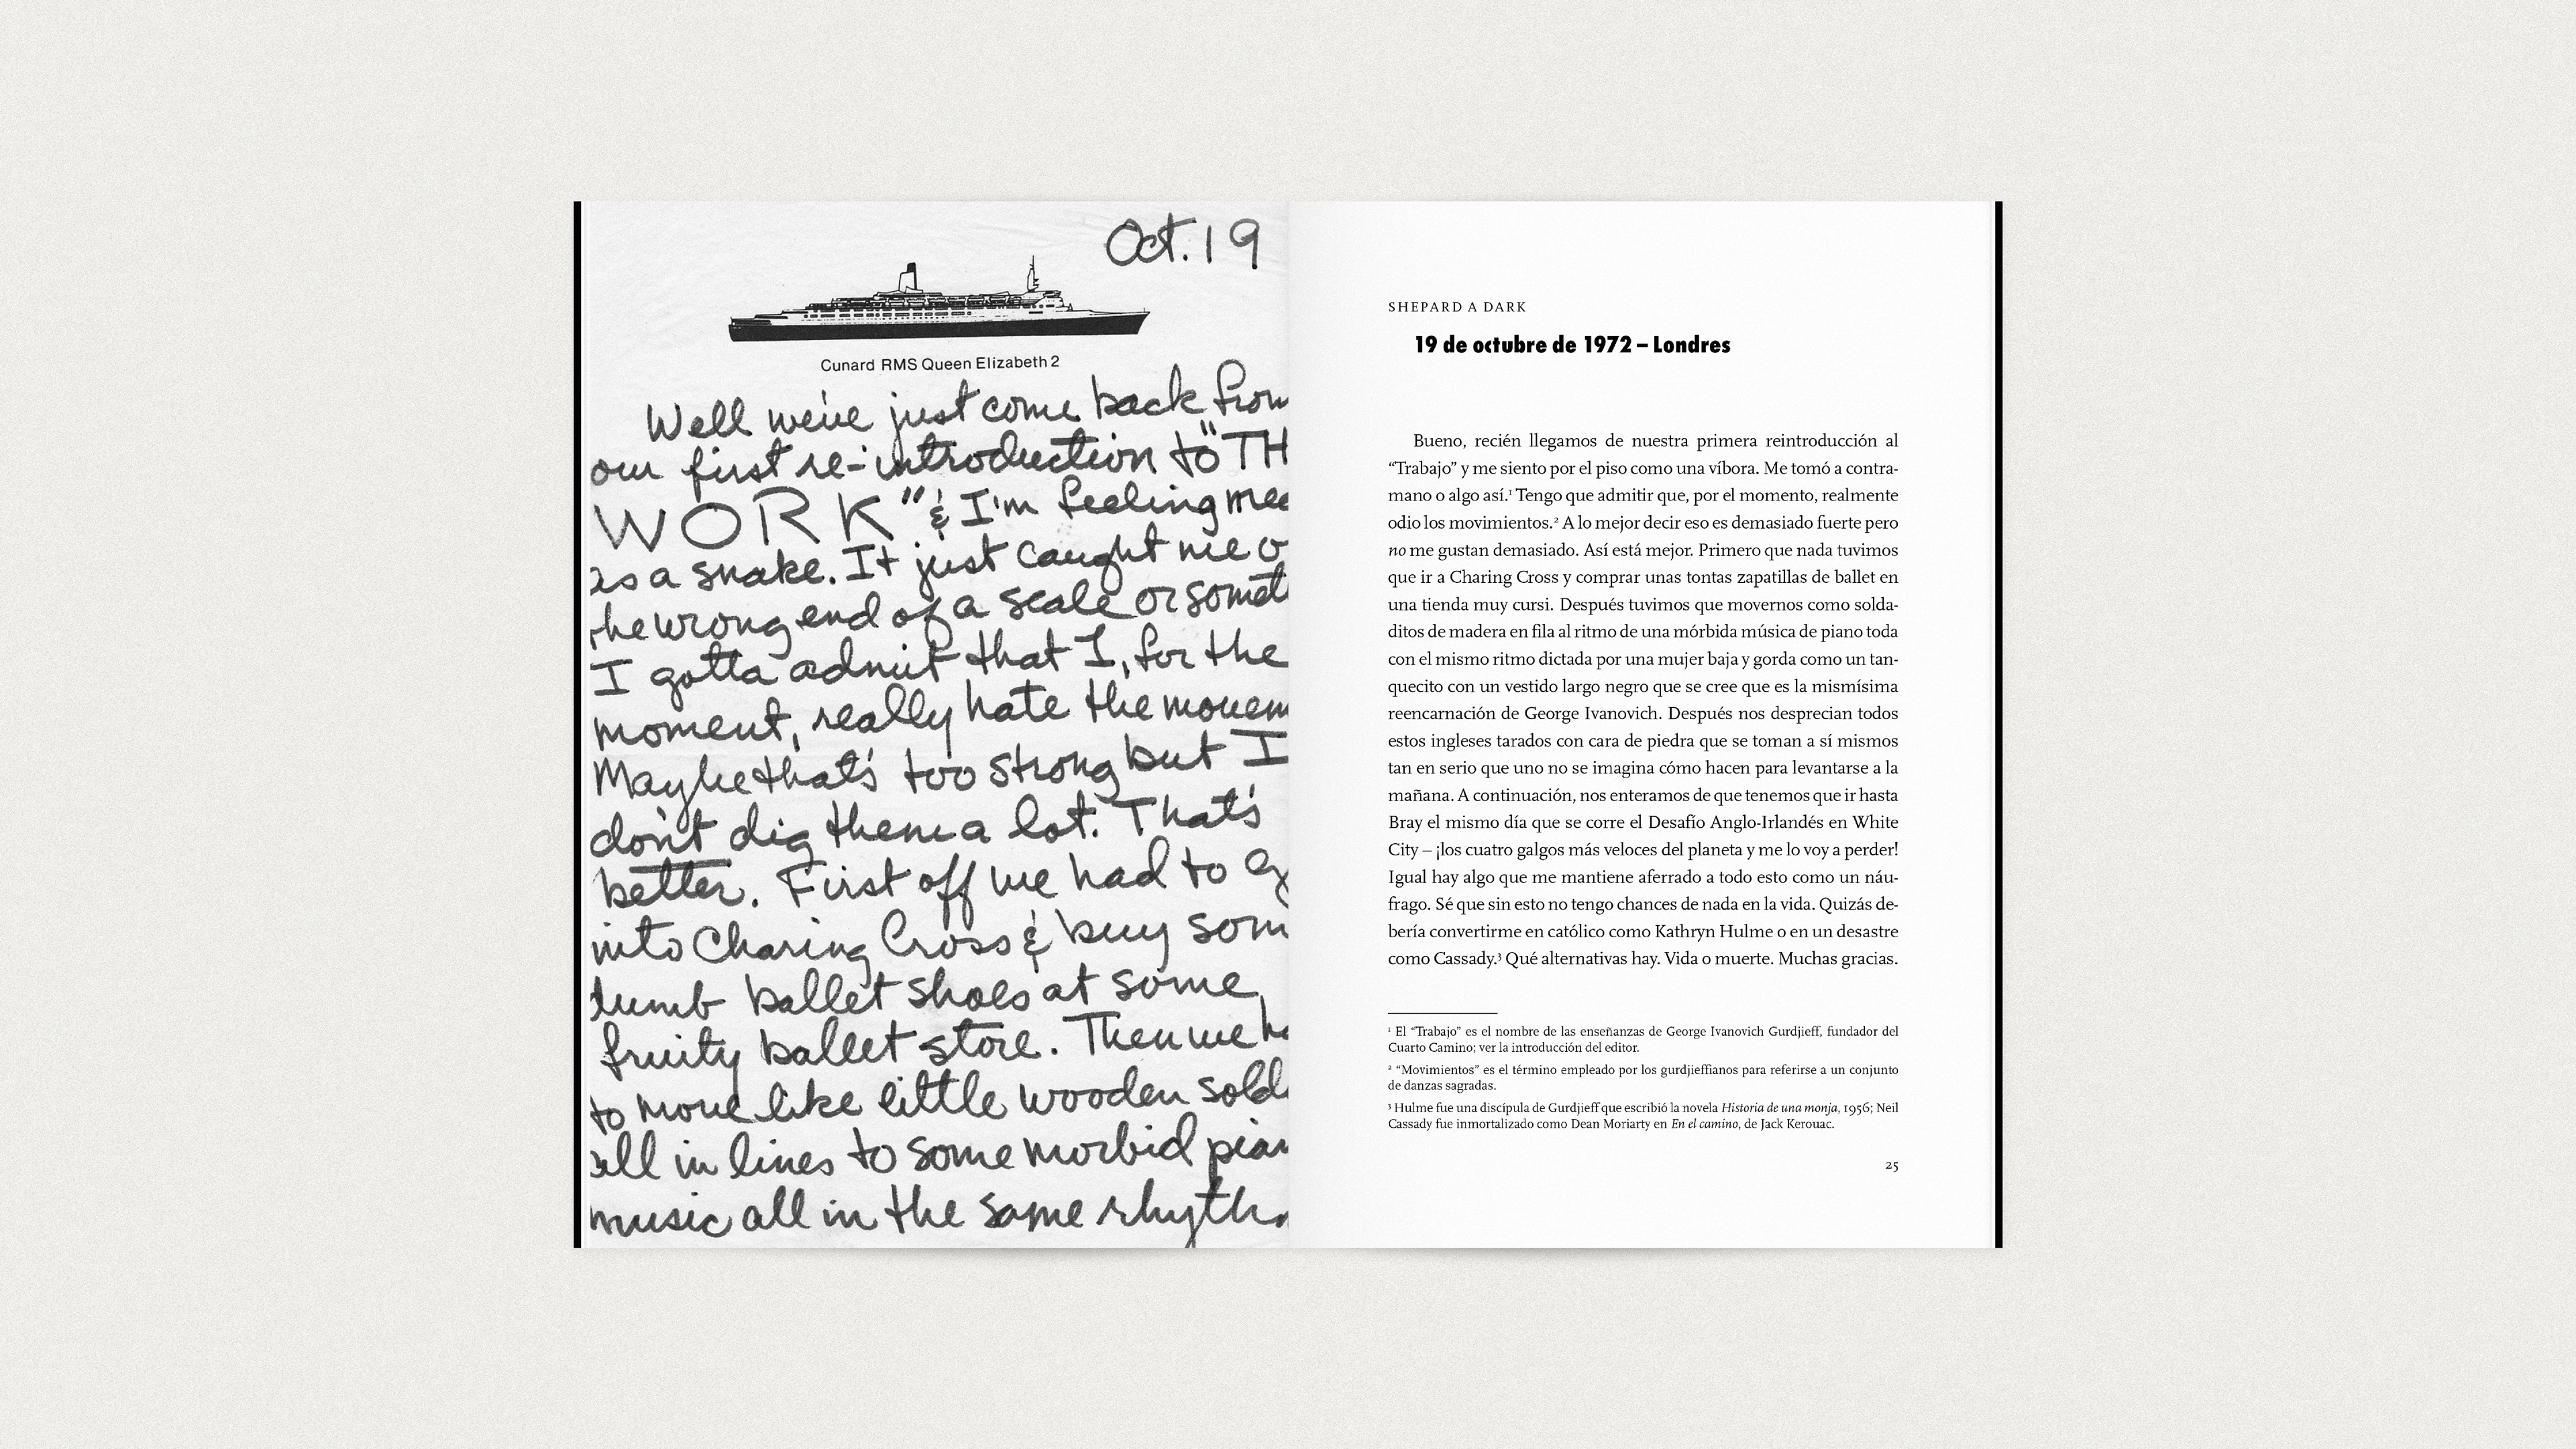 Oct. 19
Cunard RMS Queen Elizabeth 2
Well we've just come back from
our first re-introduction to "TH
WORK" & I'm feeling mee
as a snake. It just caught me o
the wrong end of a scale or somet
I gotta admit that I, for the
moment, really hate the movem
Maybe that's too strong but I
don't dig them a lot. That's
better. First off we had to g
into Charing Cross & buy som
dumb ballet shoes at some
fruity ballet store. Then we ha
to move like little wooden sold
all in lines to some morbid pian
music all in the same rhyth
SHEPARD A DARK
19 de octubre de 1972 – Londres
Bueno, recién llegamos de nuestra primera reintroducción al
“Trabajo” y me siento por el piso como una víbora. Me tomó a contra-
mano o algo así.¹ Tengo que admitir que, por el momento, realmente
odio los movimientos.² A lo mejor decir eso es demasiado fuerte pero
no me gustan demasiado. Así está mejor. Primero que nada tuvimos
que ir a Charing Cross y comprar unas tontas zapatillas de ballet en
una tienda muy cursi. Después tuvimos que movernos como solda-
ditos de madera en fila al ritmo de una mórbida música de piano toda
con el mismo ritmo dictada por una mujer baja y gorda como un tan-
quecito con un vestido largo negro que se cree que es la mismísima
reencarnación de George Ivanovich. Después nos desprecian todos
estos ingleses tarados con cara de piedra que se toman a sí mismos
tan en serio que uno no se imagina cómo hacen para levantarse a la
mañana. A continuación, nos enteramos de que tenemos que ir hasta
Bray el mismo día que se corre el Desafío Anglo-Irlandés en White
City – ¡los cuatro galgos más veloces del planeta y me lo voy a perder!
Igual hay algo que me mantiene aferrado a todo esto como un náu-
frago. Sé que sin esto no tengo chances de nada en la vida. Quizás de-
bería convertirme en católico como Kathryn Hulme o en un desastre
como Cassady.³ Qué alternativas hay. Vida o muerte. Muchas gracias.
¹ El “Trabajo” es el nombre de las enseñanzas de George Ivanovich Gurdjieff, fundador del
Cuarto Camino; ver la introducción del editor.
² “Movimientos” es el término empleado por los gurdjieffianos para referirse a un conjunto
de danzas sagradas.
³ Hulme fue una discípula de Gurdjieff que escribió la novela Historia de una monja, 1956; Neil
Cassady fue inmortalizado como Dean Moriarty en En el camino, de Jack Kerouac.
25